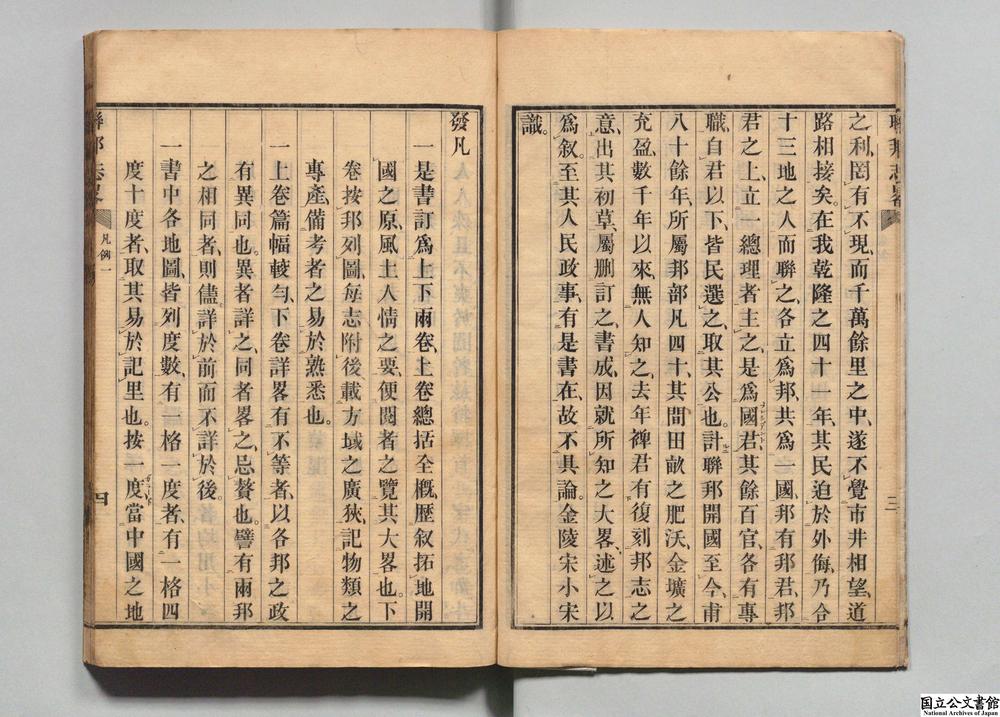 聯邦志畧
之利、罔有不現、而千萬餘里之中、遂不覺市井相望、道
路相接矣。在我乾隆之四十一年、其民迫於外侮、乃合
十三地之人而聯之、各立爲邦、共爲一國、邦有邦君、邦
君之上、立一總理者主之、是爲國君、其餘百官、各有專
職、自君以下、皆民選之、取其公也。計聯邦開國至今、甫
八十餘年、所屬邦部凡四十、其間田畝之肥沃、金壙之
充盈、數千年以來、無人知之、去年裨君有復刻邦志之
意、出其初草、屬删訂之、書成、因就所知之大畧、述之以
爲叙。至其人民政事、有是書在、故不具論。金陵宋小宋
識。
三
發凡
一是書訂爲上下兩卷、上卷總括全概、歷叙拓地開
國之原、風土人情之要、便閱者之覽其大畧也。下
卷按邦列圖、每志附後、載方域之廣狹、記物類之
專產、備考者之易於熟悉也。
一上卷篇幅較勻、下卷詳畧有不等者、以各邦之政
有異同也。異者詳之、同者畧之、忌贅也。譬有兩邦
之相同者、則儘詳於前而不詳於後。
一書中各地圖、皆列度數、有一格一度者、有一格四
度十度者、取其易於記里也。按一度、當中國之地
聯邦志畧
凡例一
四
国立公文書館
National Archives of Japan